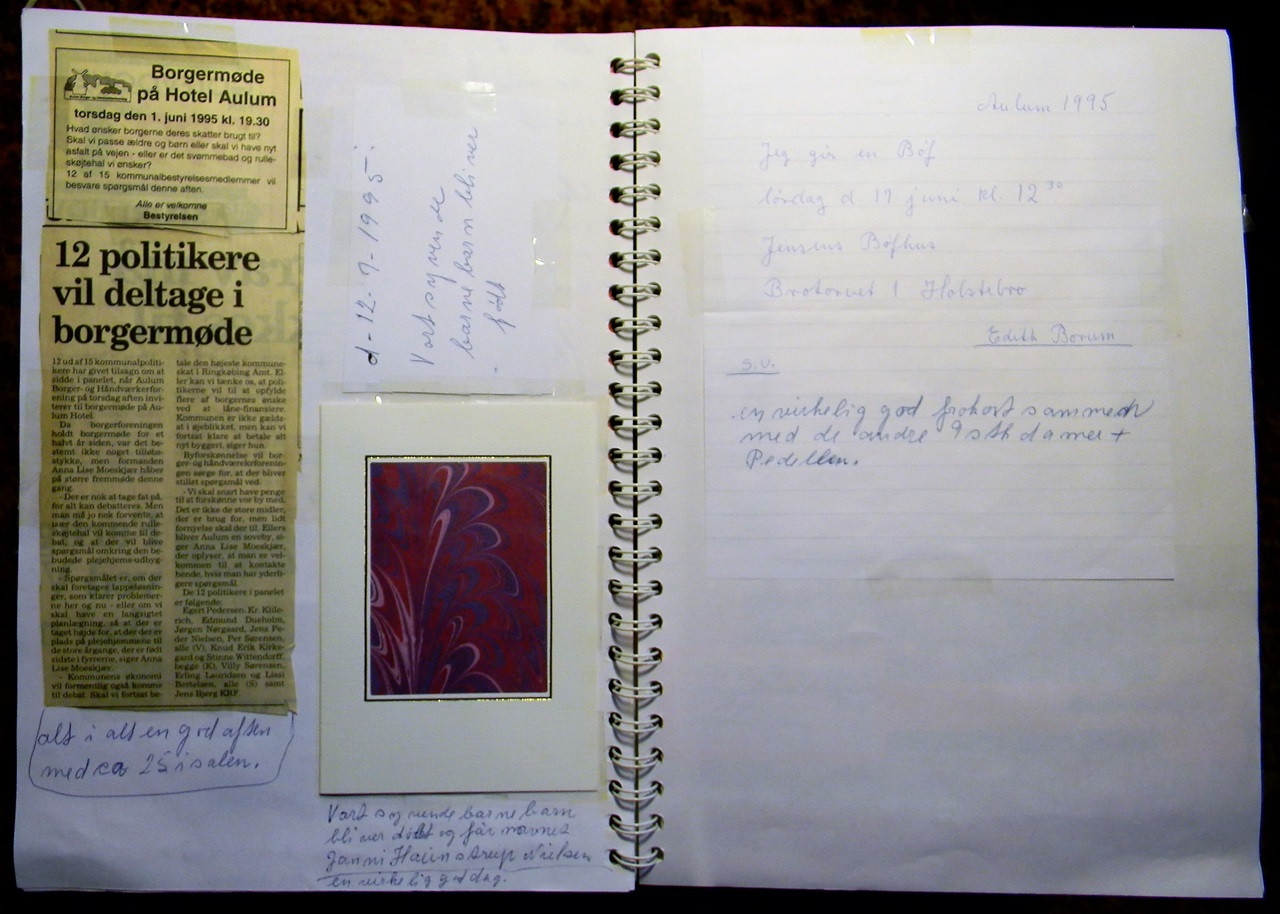 Borgermøde
på Hotel Aulum
torsdag den 1. juni 1995 kl. 19.30
Hvad ønsker borgerne deres skatter brugt til?
Skal vi passe ældre og børn eller skal vi have nyt
asfalt på vejen - eller er det svømmebad og rulle-
skøjtehal vi ønsker?
12 af 15 kommunalbestyrelsesmedlemmer vil
besvare spørgsmål denne aften.
Alle er velkomne
Bestyrelsen
12 politikere
vil deltage i
borgermøde
12 ud af 15 kommunalpoliti-
kere har givet tilsagn om at
sidde i panelet, når Aulum
Borger- og Håndværkerfor-
ening på torsdag aften invi-
terer til borgermøde på Au-
lum Hotel.
Da borgerforeningen
holdt borgermøde for et
halvt år siden, var det be-
stemt ikke noget tilløbs-
stykke, men formanden
Anna Lise Moeskjær håber
på større fremmøde denne
gang.
- Der er nok at tage fat på,
for alt kan debatteres. Men
man må jo nok forvente, at
især den kommende rulle-
skøjtehal vil komme til de-
bat, og at der vil blive
spørgsmål omkring den be-
budede plejehjems-udbyg-
ning.
- Spørgsmålet er, om der
skal foretages lappeløsnin-
ger, som klarer problemer-
ne her og nu - eller om vi
skal have en langsigtet
planlægning, så at der er
taget højde for, at der der er
plads på plejehjemmene til
de store årgange, der er født
sidste i fyrrerne, siger Anna
Lise Moeskjær.
- Kommunens økonomi
vil formentlig også komme
til debat. Skal vi fortsat be-
tale den højeste kommune-
skat i Ringkøbing Amt. El-
ler kan vi tænke os, at poli-
tikerne vil til at opfylde
flere af borgernes ønske
ved at låne-finansiere.
Kommunen er ikke gælds-
at i øjeblikket, men kan vi
fortsat klare at betale alt
nyt byggeri, siger hun.
Byforskønnelse vil bor-
ger-og håndværekrforenin-
gen sørge for, at der bliver
stillet spørgsmål ved.
- Vi skal snart have penge
til at forskønne vor by med.
Det er ikke de store midler,
der er brug for, men lidt
fornyelse skal der til. Ellers
bliver Aulum en soveby, si-
ger Anna Lise Moeskjær,
der oplyser, at man er vel-
kommen til at kontakte
hende, hvis man har yderli-
gere spørgsmål.
De 12 politikere i panelet
er følgende:
Egert Pedersen, Kr. Kilde-
rich, Edmund Dueholm,
Jørgen Nørgaard, Jens Pe-
der Nielsen, Per Sørensen,
alle (V), Knud Erik Kirke-
gard og Stinne Wittendorff,
begge (K), Villy Sørensen,
Erling Lauridsen og Lissi
Bertelsen, alle (S) samt
Jens Bjerg KRF.
alt i alt en god aften
med ca 25 i salen.
d-12-7-1995:
Vort syvende
barnebarn bliver
født
Vort syvende barnebarn
bliver døbt og får navnet
Strup Nielsen
en virkelig god dag.
Aulum 1995
Jeg gir en Böf
lørdag d. 17 juni kl. 12 30
Jensens Böfhus
Brotorvet 1 Holstebro
Edith Borum
S.U.
en virkelig god frokost sammen
med de andre 9 stk damer +
Pedellen.